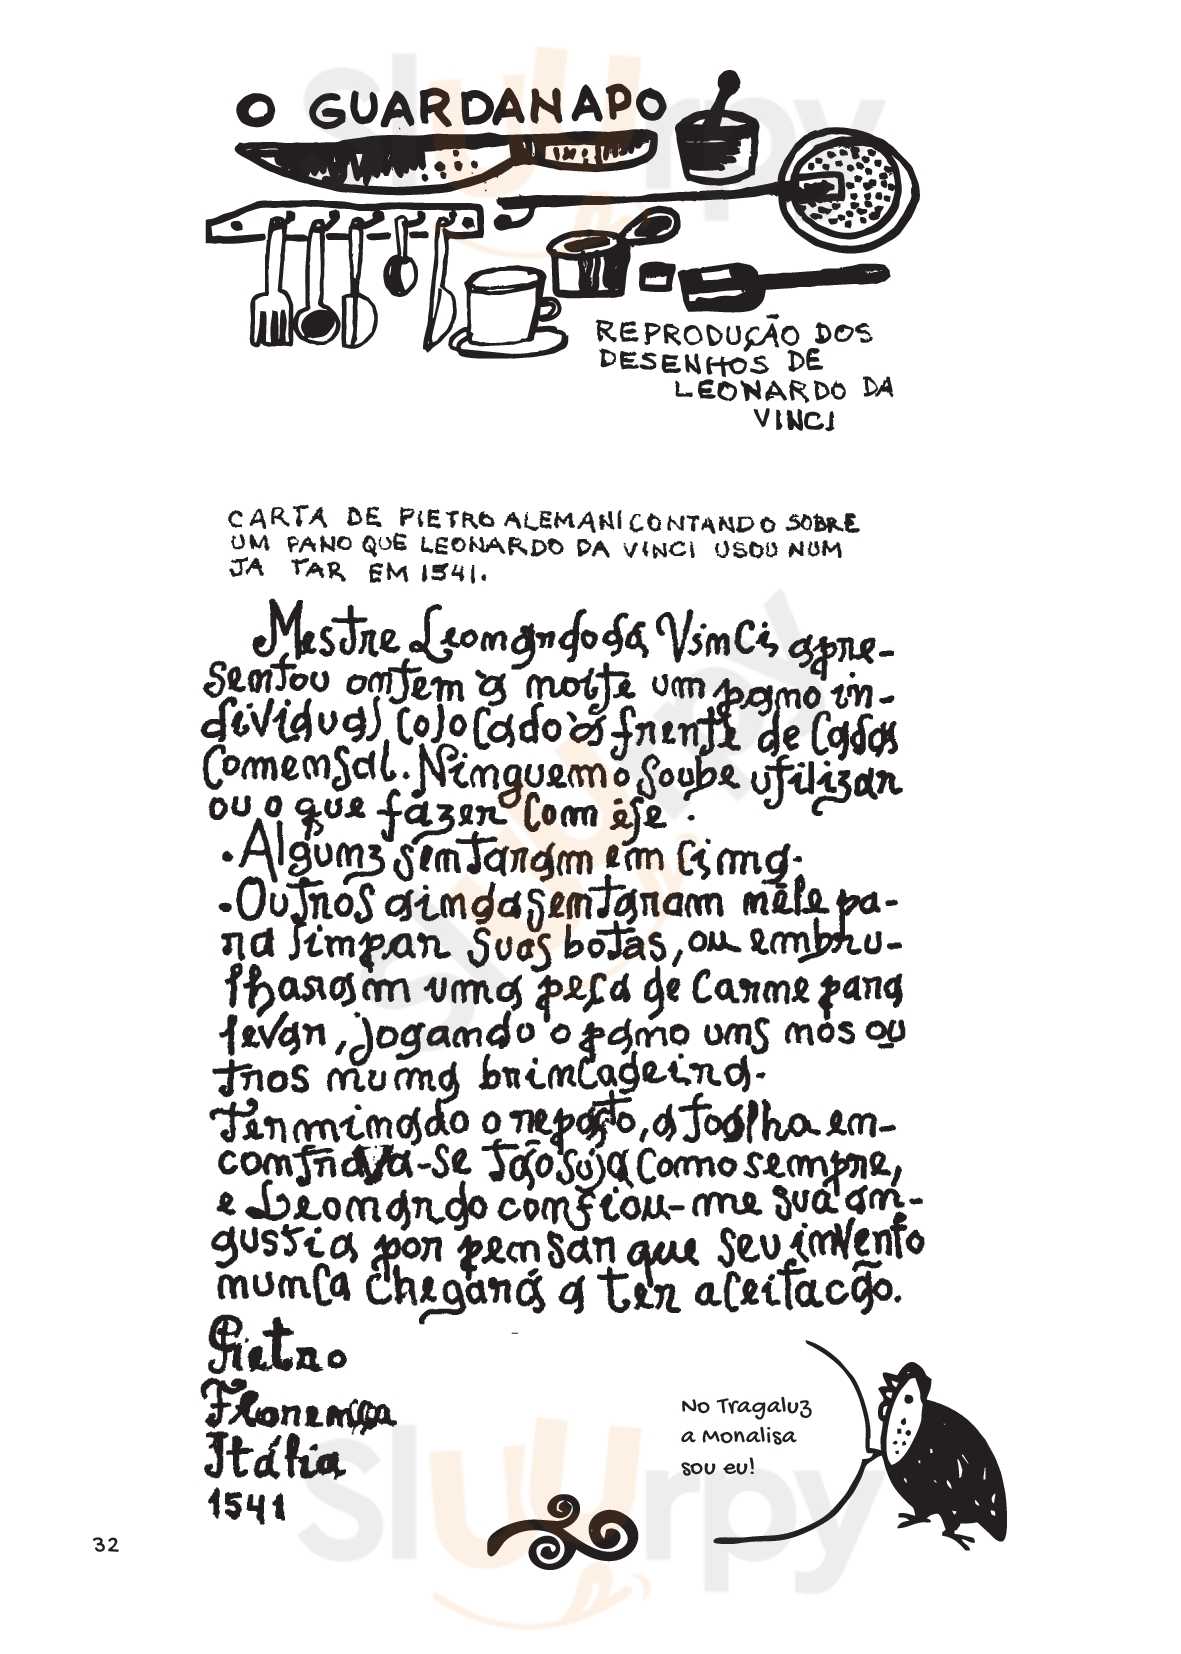 O GUARDANAPO
REPRODUÇÃO DOS
DESENHOS DE
LEONARDO DA
VINCI
CARTA DE PIETRO ALEMANI CONTANDO SOBRE
UM PANO QUE LEONARDO DA VINCI USOU NUM
JA TAR EM 1541.
Mestre Leonardo da Vinci, apre-
sentou ontem à noite um pano in-
dividual colocado às frente de cada
comensal. Ninguem o soube utilizar
ou o que fazer com êle.
. Alguns sentaram em cima.
. Outros ainda sentaram nêle pa-
ra limpar suas botas, ou embru-
lharam uma peça de carne para
levar, jogando o pano uns nos ou
tros numa brincadeira.
Terminado o repasto, a toalha en-
contrava-se tão suja como sempre,
e Leonardo confiou-me sua an-
gustia por pensar que seu invento
nunca chegará a ter aceitacão.
Pietro
Florença
Itália
1541
No Tragaluz
a Monalisa
sou eu!
32
Slurpy
Slurpy
Slurpy